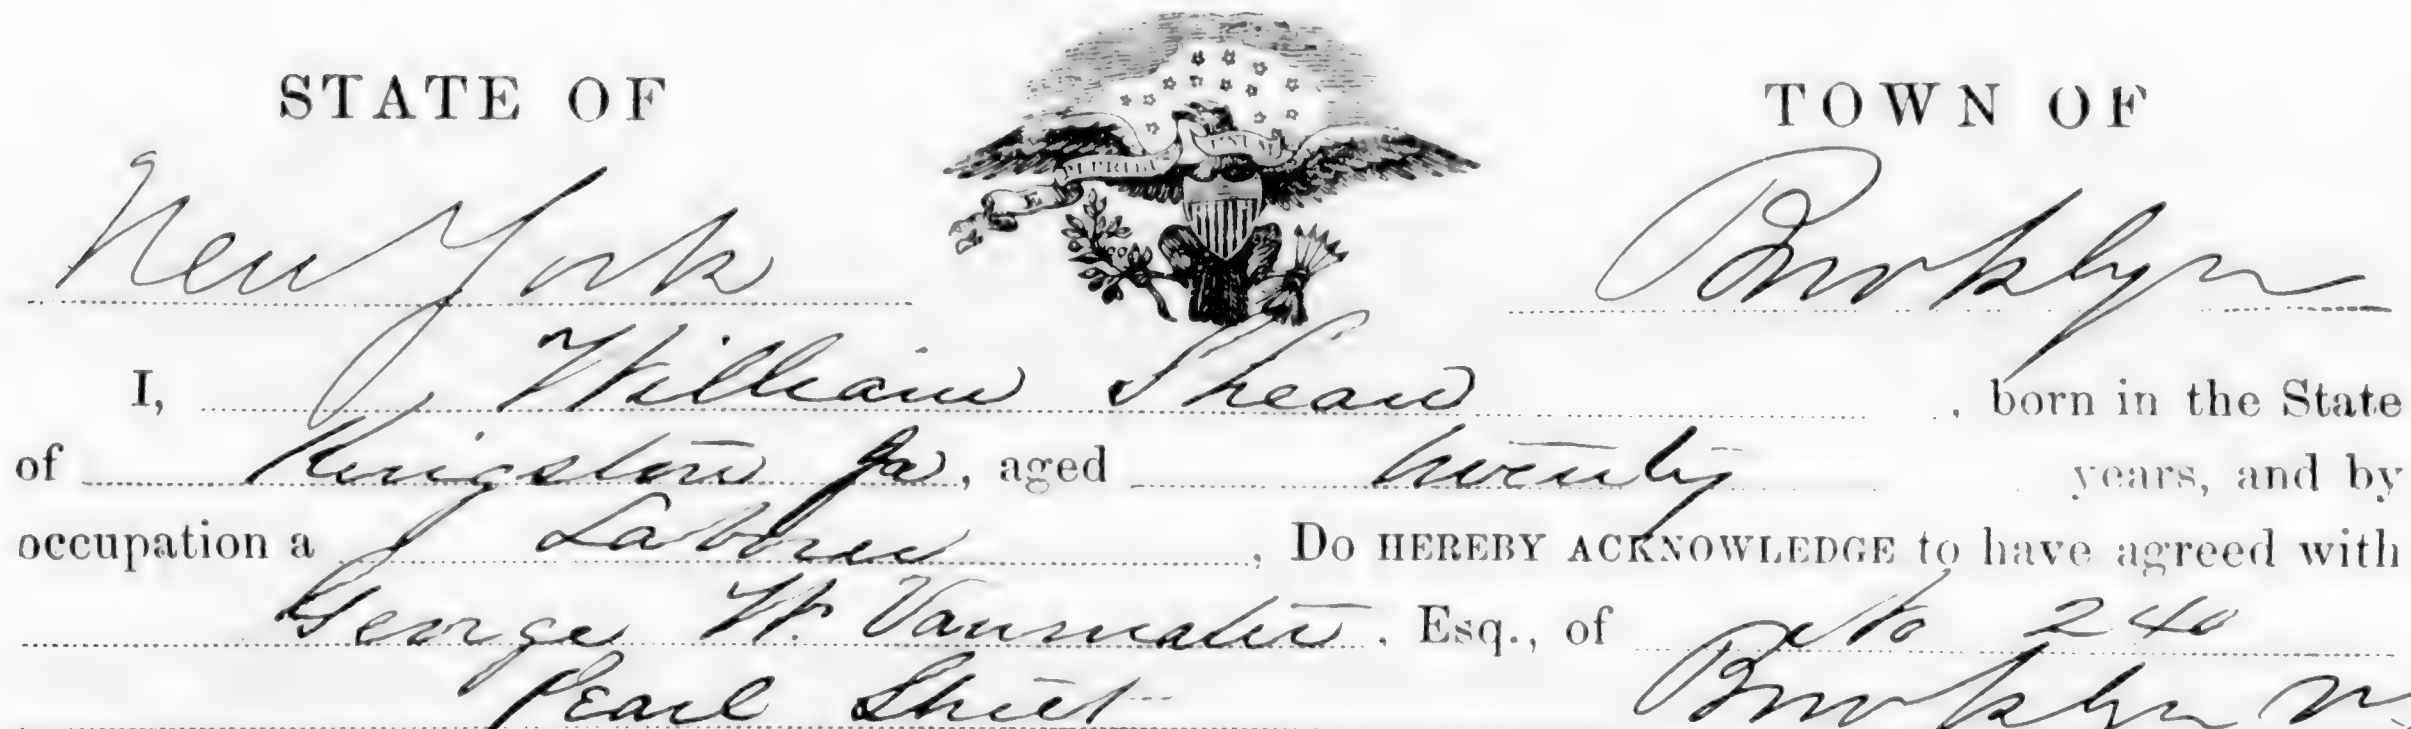 STATE OF
TOWN OF
E PLURIBUS UNUM
New York
Brooklyn
I, William Shean, born in the State
of Kingston Ja, aged twenty years, and by
occupation a Laborer, Do HEREBY ACKNOWLEDGE to have agreed with
George W. Vanmater, Esq., of No 240
Pearl Street Brooklyn N.